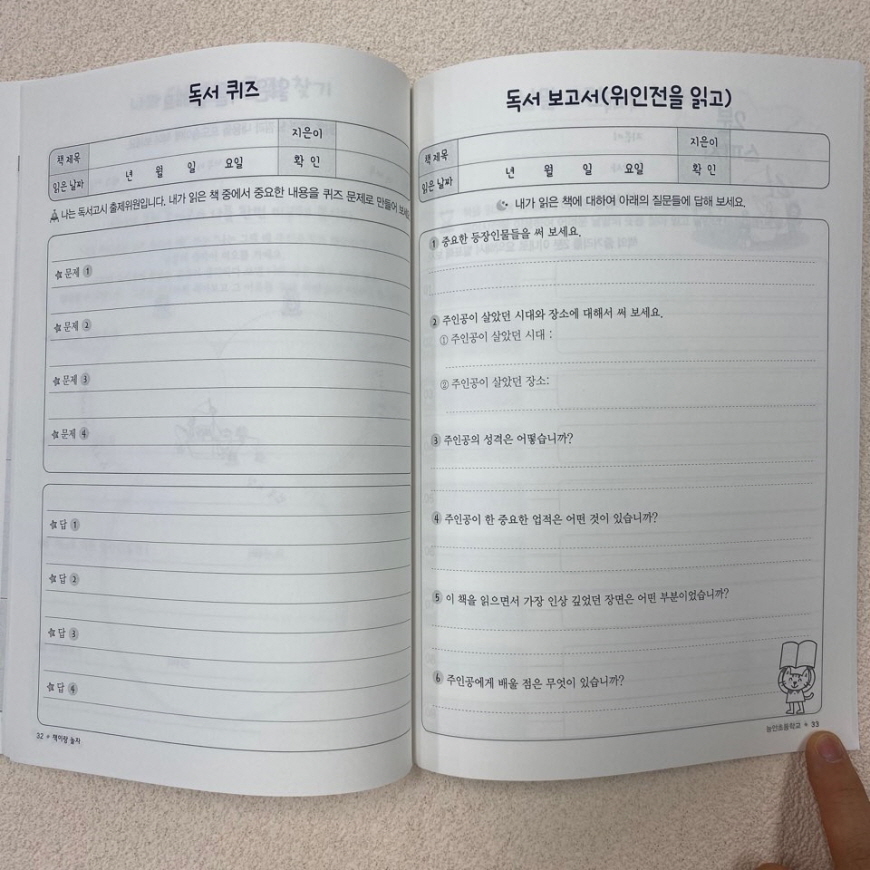 독서 퀴즈
책 제목 지은이
읽은 날짜 년 월 일 요일 확 인
나는 독서고시 출제위원입니다. 내가 읽은 책 중에서 중요한 내용을 퀴즈 문제로 만들어 보세요
문제 ①
문제 ②
문제 ③
문제 ④
답 ①
답 ②
답 ③
답 ④
32 책이랑 놀자
독서 보고서(위인전을 읽고)
책 제목 지은이
읽은 날짜 년 월 일 요일 확 인
내가 읽은 책에 대하여 아래의 질문들에 답해 보세요.
❶ 중요한 등장인물들을 써 보세요.
❷ 주인공이 살았던 시대와 장소에 대해서 써 보세요.
① 주인공이 살았던 시대 :
② 주인공이 살았던 장소:
❸ 주인공의 성격은 어떻습니까?
❹ 주인공이 한 중요한 업적은 어떤 것이 있습니까?
❺ 이 책을 읽으면서 가장 인상 깊었던 장면은 어떤 부분이었습니까?
❻ 주인공에게 배울 점은 무엇이 있습니까?
능인초등학교 33